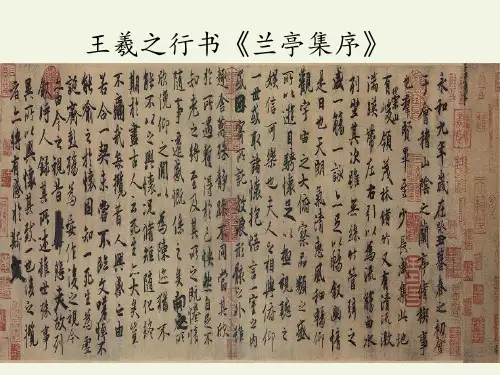 王羲之行书《兰亭集序》
永和九年歲在癸丑暮春之初會
于會稽山陰之蘭亭脩稧事
也羣賢畢至少長咸集此地
有崇山峻領茂林脩竹又有清流激
湍暎帶左右引以為流觴曲水
列坐其次雖無絲竹管弦之
盛一觴一詠亦足以暢敘幽情
是日也天朗氣清惠風和暢仰
觀宇宙之大俯察品類之盛
所以遊目騁懷足以極視聽之
娛信可樂也夫人之相與俯仰
一世或取諸懷抱悟言一室之內
或因寄所託放浪形骸之外雖
趣舍萬殊靜躁不同當其欣
於所遇蹔得於己怏然自足不
知老之將至及其所之既惓情
隨事遷感慨係之矣向之所
欣俛仰之閒以為陳迹猶不
能不以之興懷況脩短隨化終
期於盡古人云死生亦大矣豈
不痛哉每攬昔人興感之由
若合一契未嘗不臨文嗟悼不
能喻之於懷固知一死生為虛
誕齊彭殤為妄作後之視今
亦由今之視昔悲夫故列
敘時人錄其所述雖世殊事
異所以興懷其致一也後之攬
者亦將有感於斯文